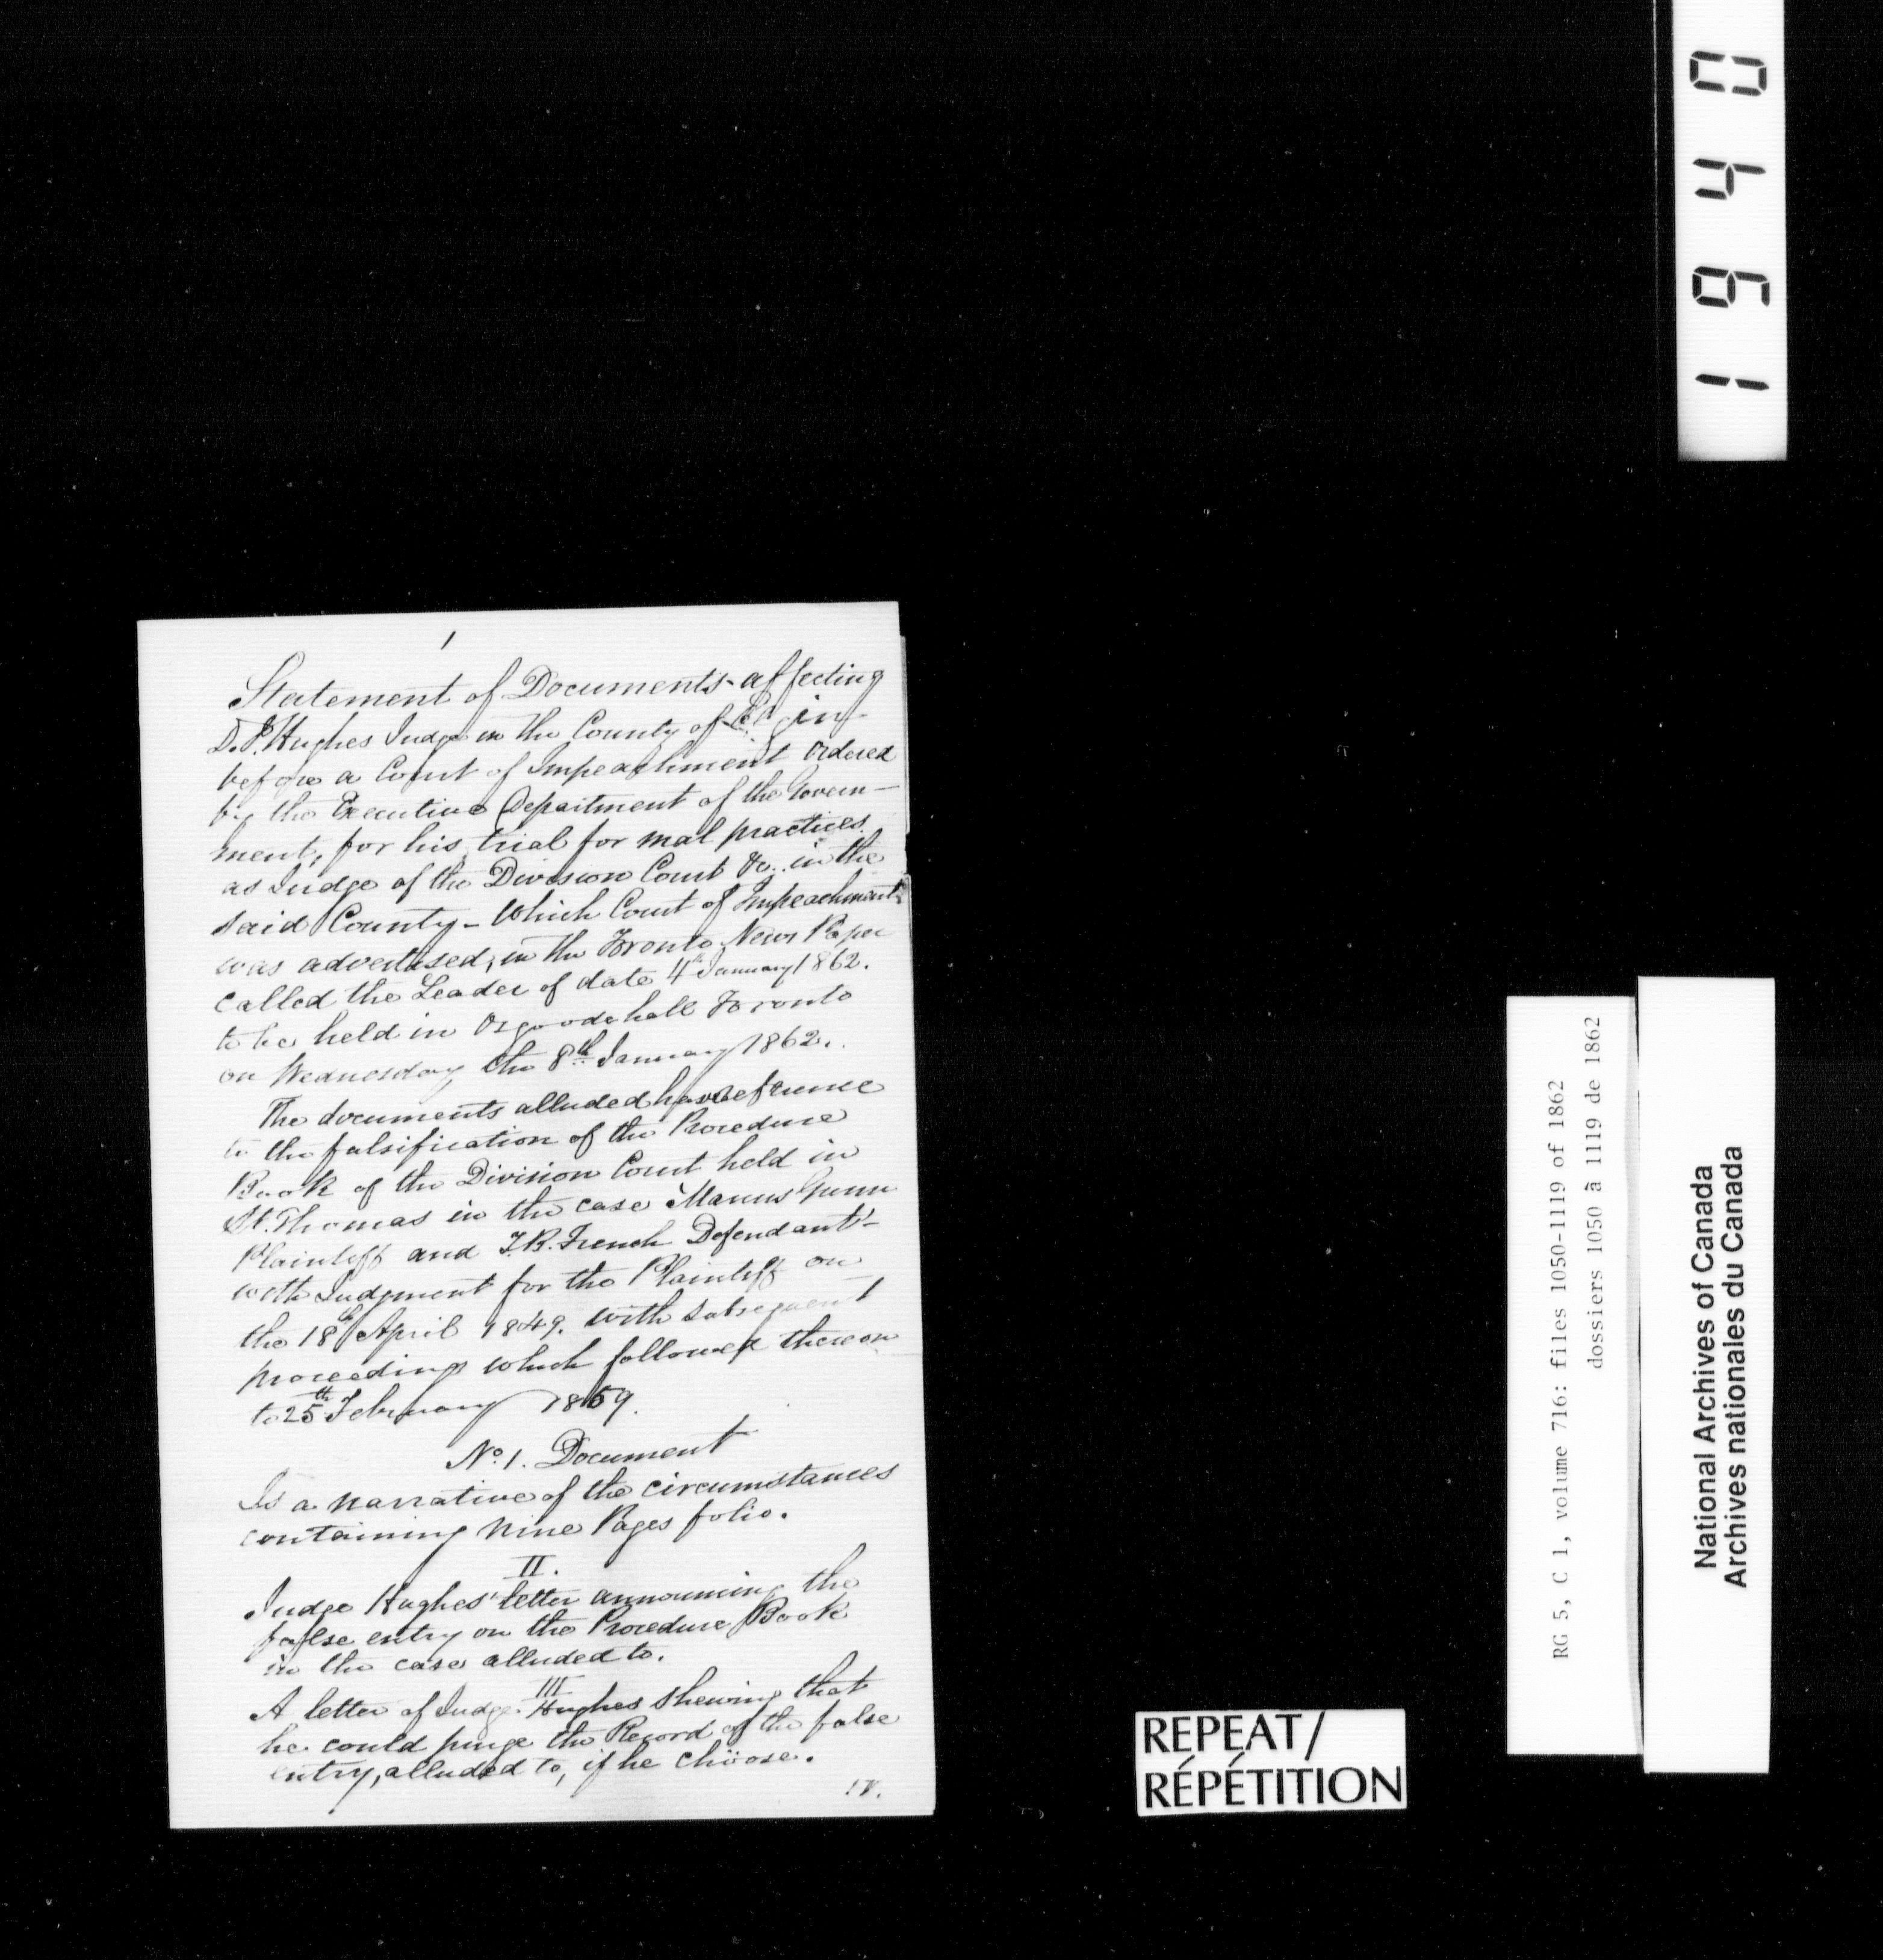 1
Statement of Documents affecting
D.J. Hughes Judge in the County of Elgin
before a Court of Impeachment ordered
by the Executive Department of the Govern-
ment, for his trial for mal practices
as Judge of the Division Court &c. in the
said County - Which Court of Impeachment
was advertised, in the Toronto News Paper
called the Leader of date 4th January 1862.
to be held in Osgoode hall Toronto
on Wednesday the 8th January 1862.
The documents alluded have refrence
to the falsification of the Procedure
Book of the Division Court held in
St. Thomas in the case Marcus Gunn
Plaintiff and T.B. French Defendant-
with Judgment for the Plaintiff on
the 18th April 1849. with subsequent
proceedings which followed thereon
to 25th February 1859.
No. 1. Document
Is a narrative of the circumstances
containing Nine Pages folio.
II.
Judge Hughes' letter announcing the
false entry on the Procedure Book
in the case alluded to.
III
A letter of Judge Hughes shewing that
he could purge the Record of the false
entry, alluded to, if he choose.
IV.
1940
RG 5, C 1, volume 716: files 1050-1119 of 1862
dossiers 1050 à 1119 de 1862
National Archives of Canada
Archives nationales du Canada
REPEAT/
RÉPÉTITION